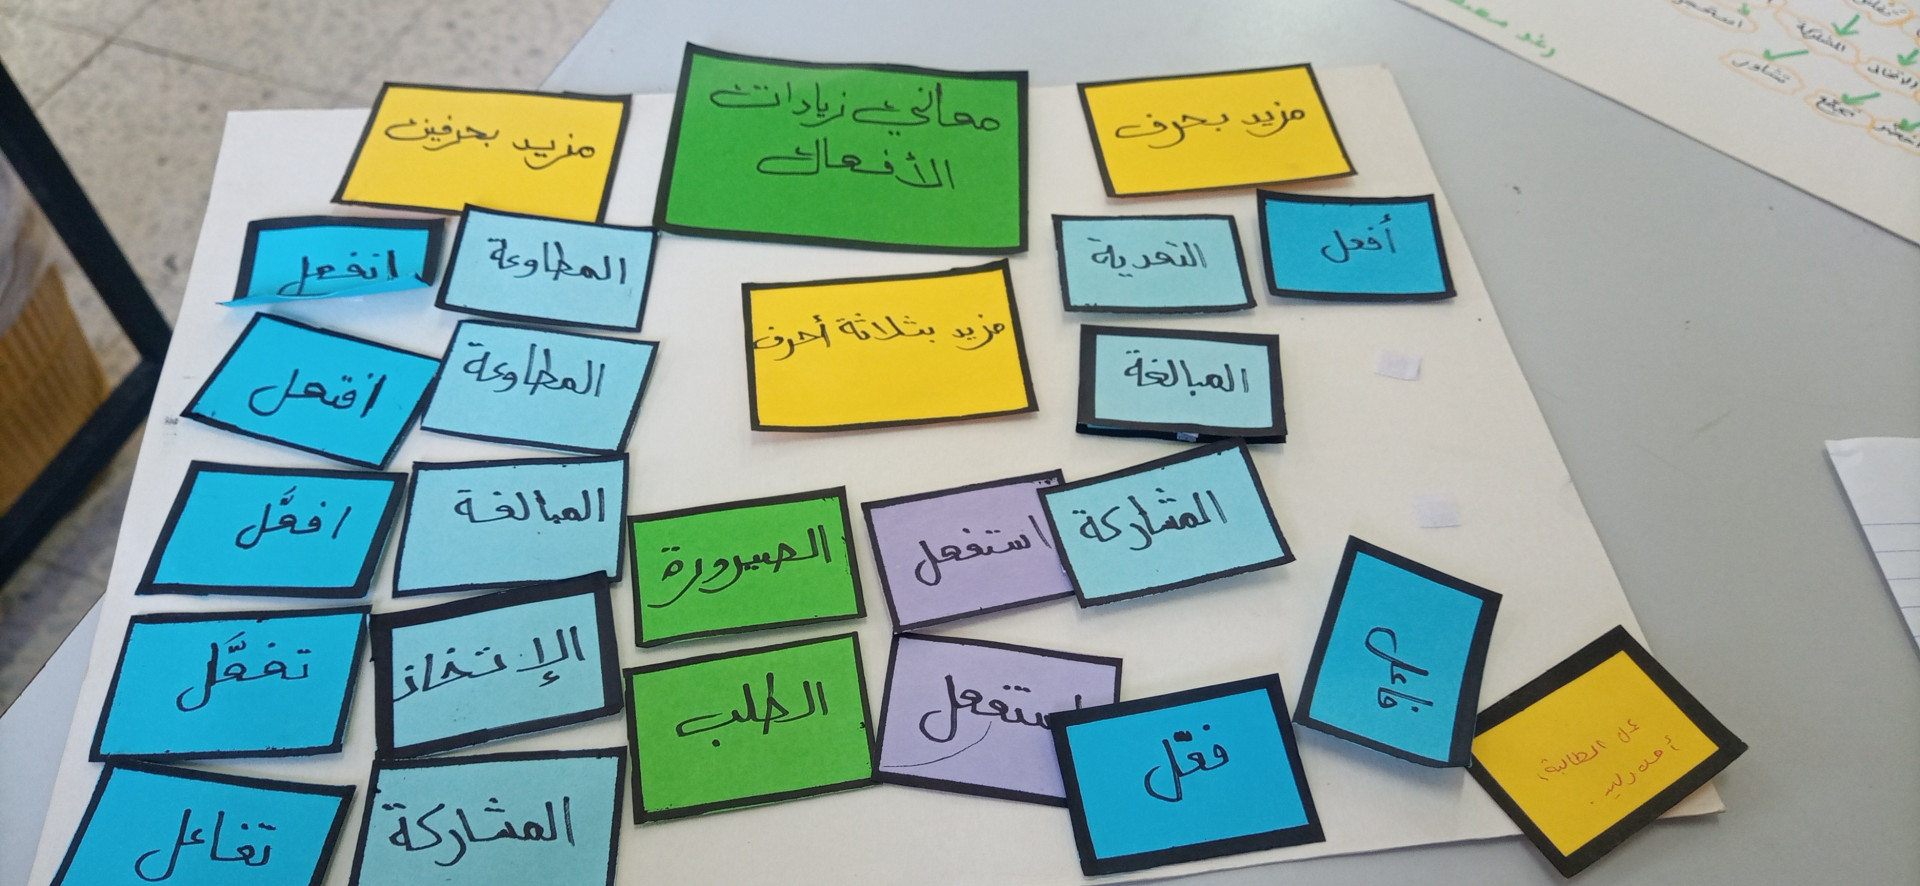 معاني زيادات
الأفعال
مزيد بحرف
أفعل
التعدية
المبالغة
المشاركة
فعّل
فاعل
مزيد بحرفين
المطاوعة
انفعل
المطاوعة
افتعل
المبالغة
افعَّل
الإتخاذ
تفعَّل
المشاركة
تفاعل
مزيد بثلاثة أحرف
استفعل
الصيرورة
استفعل
الطلب
عمل الطالبة:
المشاركة
تشاور